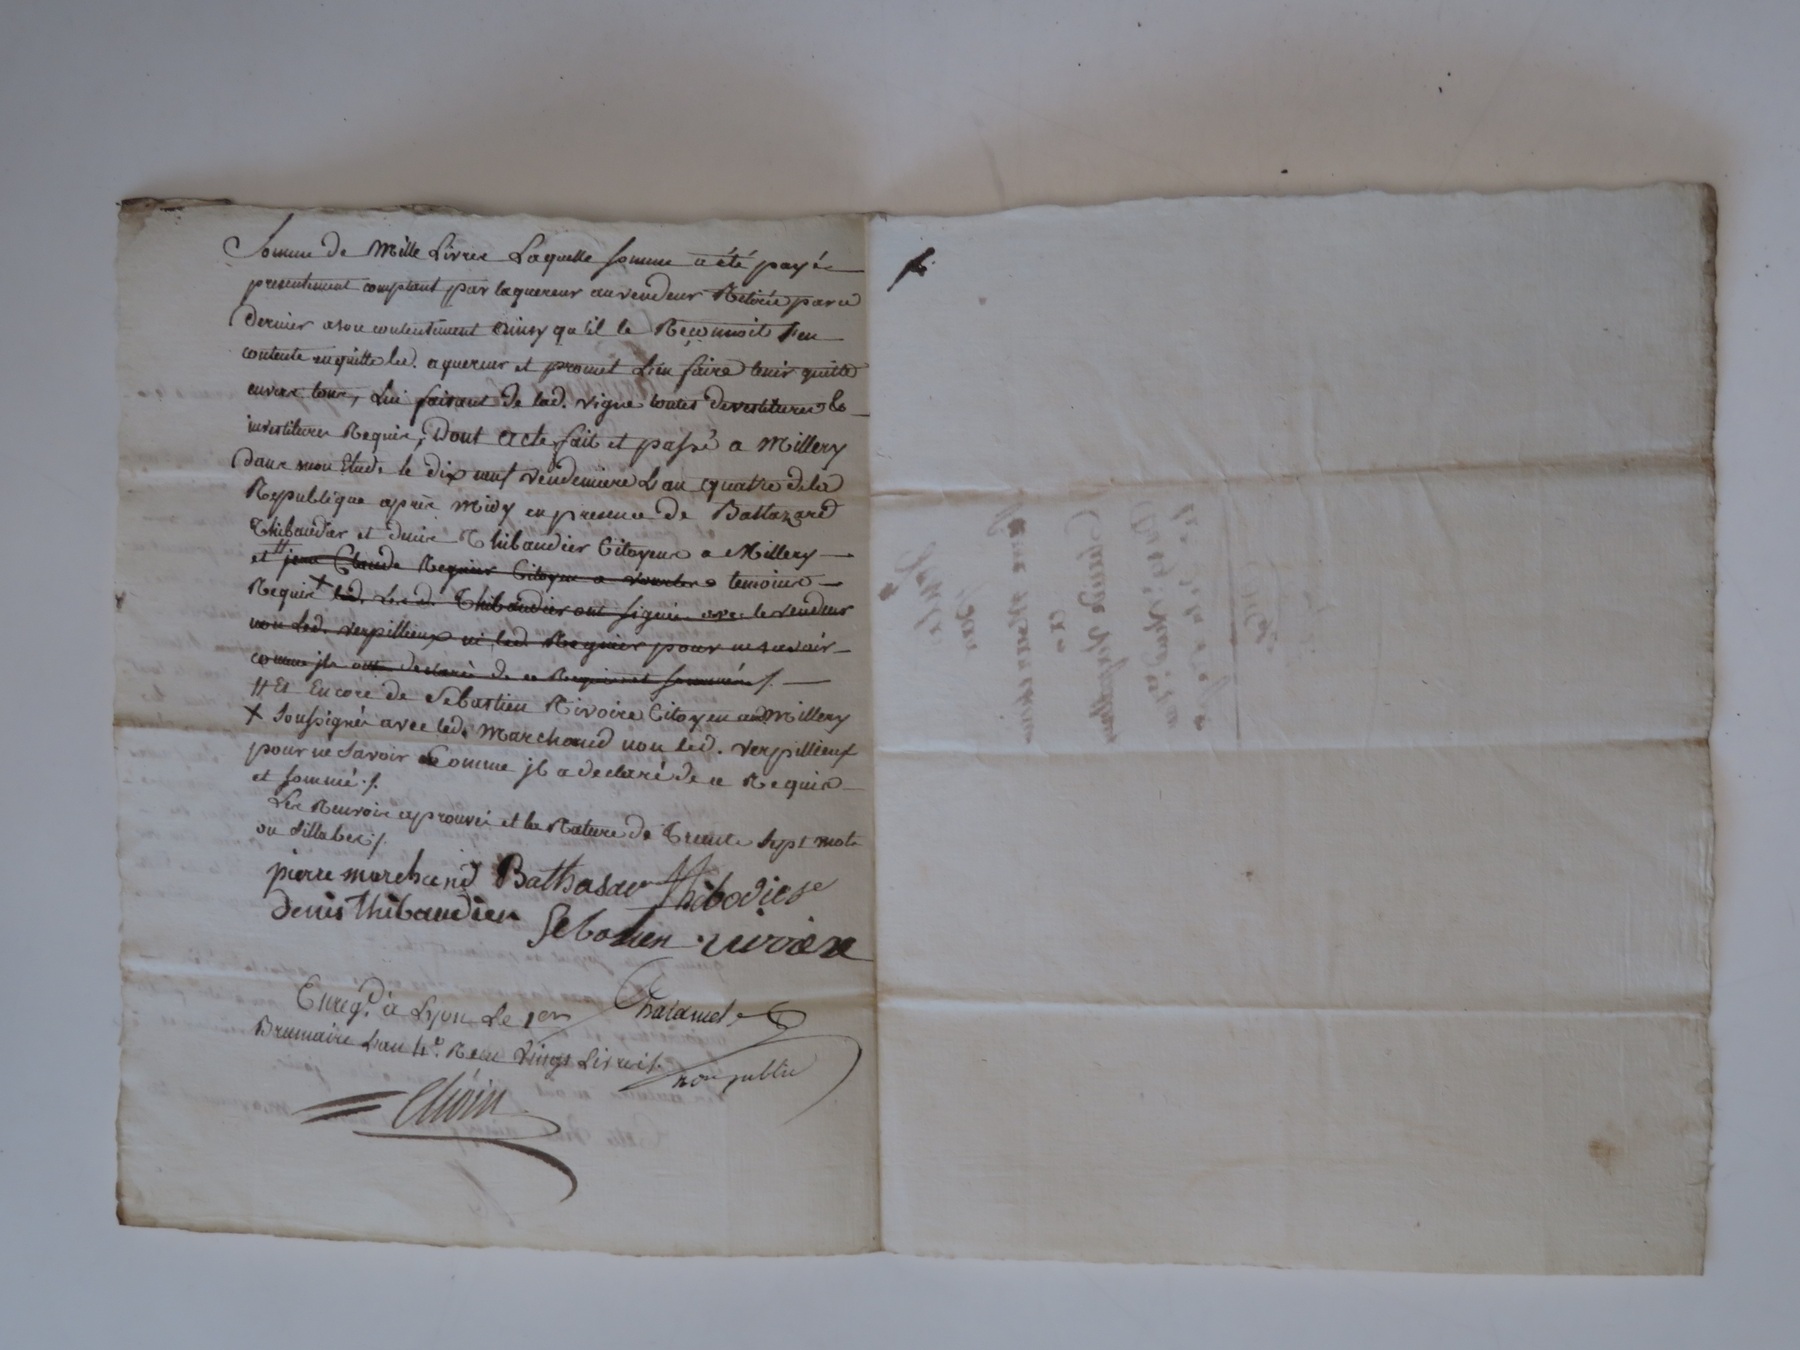 Somme de Mille Livres Laquelle somme a été payée
presentement comptant par laquereur au vendeur Retirée par ce
dernier a son contentement Ainsy qu'il le Reconnoit s'en
contente en quitte led. aquereur et promet L'en faire tenir quitte
envers tous, Lui faisant de lad. vigne toutes devestitures &
investitures Requis, Dont Acte fait et passé a Millery
Dans mon Etude le dix neuf vendemiere L'an quatre de la
Republique après Midy en presence de Baltazard
Thibaudier et denis Thibaudier Citoyens a Millery
et # jean Claude Regnier Citoyen a vourles temoins
Requis X led. Les d. Thibaudier ont signés avec le vendeur
non led. verpillieux ni led. Regnier pour ne savoir
comme ils ont declaré de ce Requis et sommés /.
# Et Encore de Sebastien Rivoire Citoyen aud. Millery
X Soussignés avec led. Marchand non led. verpillieux
pour ne Savoir Comme il a declaré de ce Requis
et sommé /.
Les Renvois aprouvés et la Rature de Trente sept mots
ou Sillabes /.
pierre marchand Balthasar Thibodier
Denis Thibaudier
Sebastien rivoire
Enreg.d à Lyon Le 1er
Chatanel
Brumaire L'an 4.e Reçu Vingt Livres /.
not public